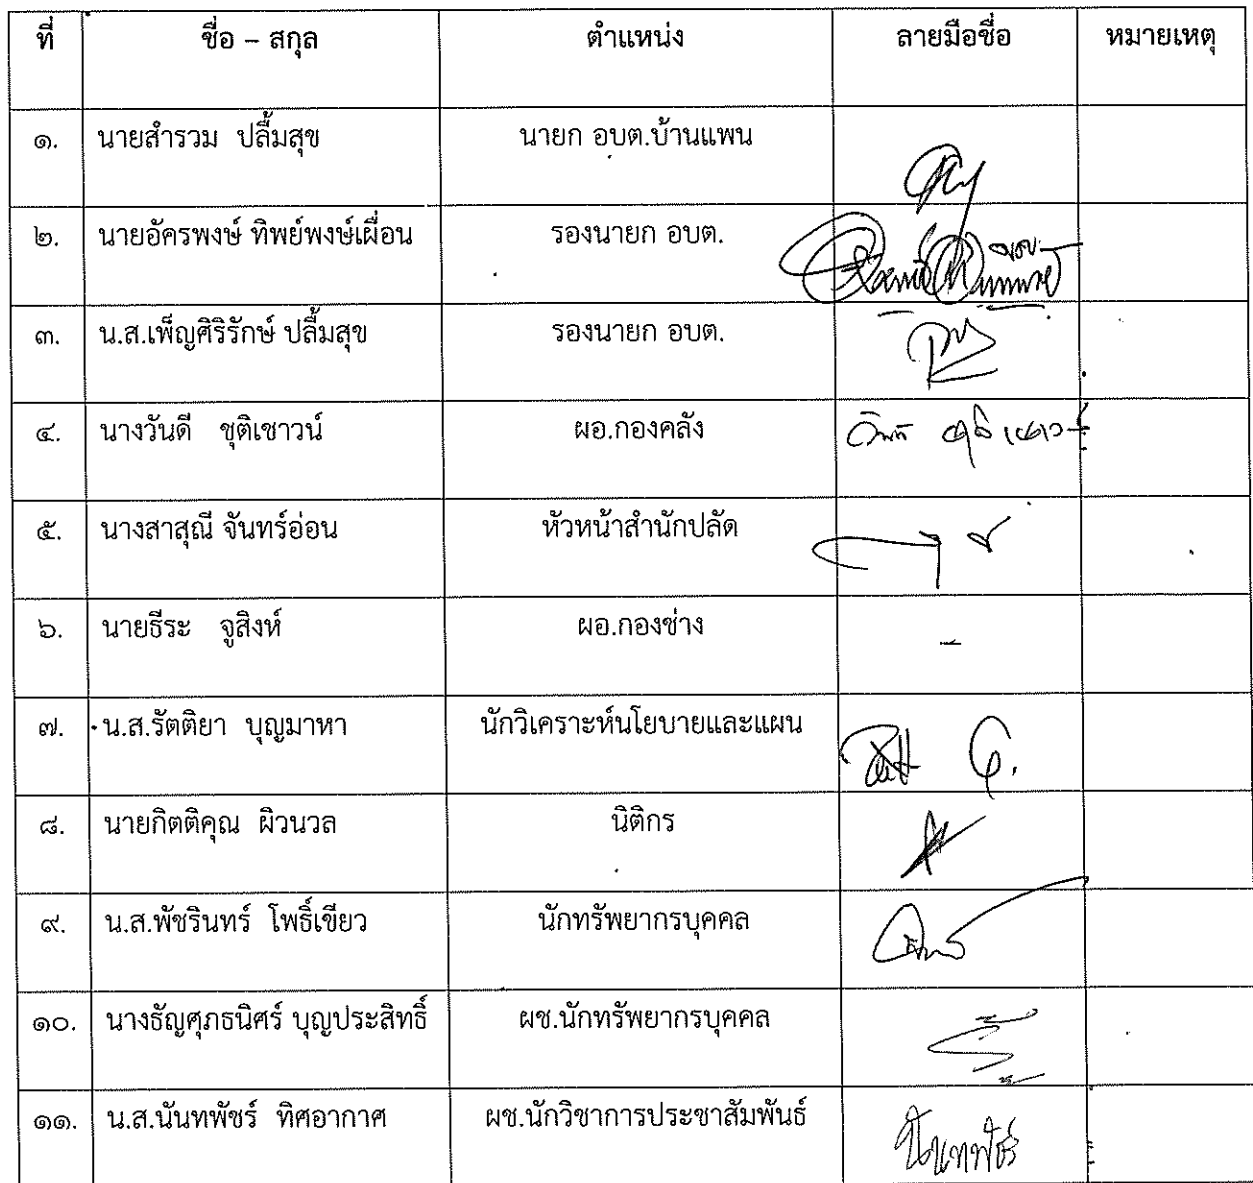 ที่ ชื่อ – สกุล ตำแหน่ง ลายมือชื่อ หมายเหตุ
๑. นายสำรวม ปลื้มสุข นายก อบต.บ้านแพน
๒. นายอัครพงษ์ ทิพย์พงษ์เผื่อน รองนายก อบต.
๓. น.ส.เพ็ญศิริรักษ์ ปลื้มสุข รองนายก อบต.
๔. นางวันดี ชุติเชาวน์ ผอ.กองคลัง
๕. นางสาสุณี จันทร์อ่อน หัวหน้าสำนักปลัด
๖. นายธีระ จูสิงห์ ผอ.กองช่าง -
๗. น.ส.รัตติยา บุญมาหา นักวิเคราะห์นโยบายและแผน
๘. นายกิตติคุณ ผิวนวล นิติกร
๙. น.ส.พัชรินทร์ โพธิ์เขียว นักทรัพยากรบุคคล
๑๐. นางธัญศุภธนิศร์ บุญประสิทธิ์ ผช.นักทรัพยากรบุคคล
๑๑. น.ส.นันทพัชร์ ทิศอากาศ ผช.นักวิชาการประชาสัมพันธ์ นันทพัชร์